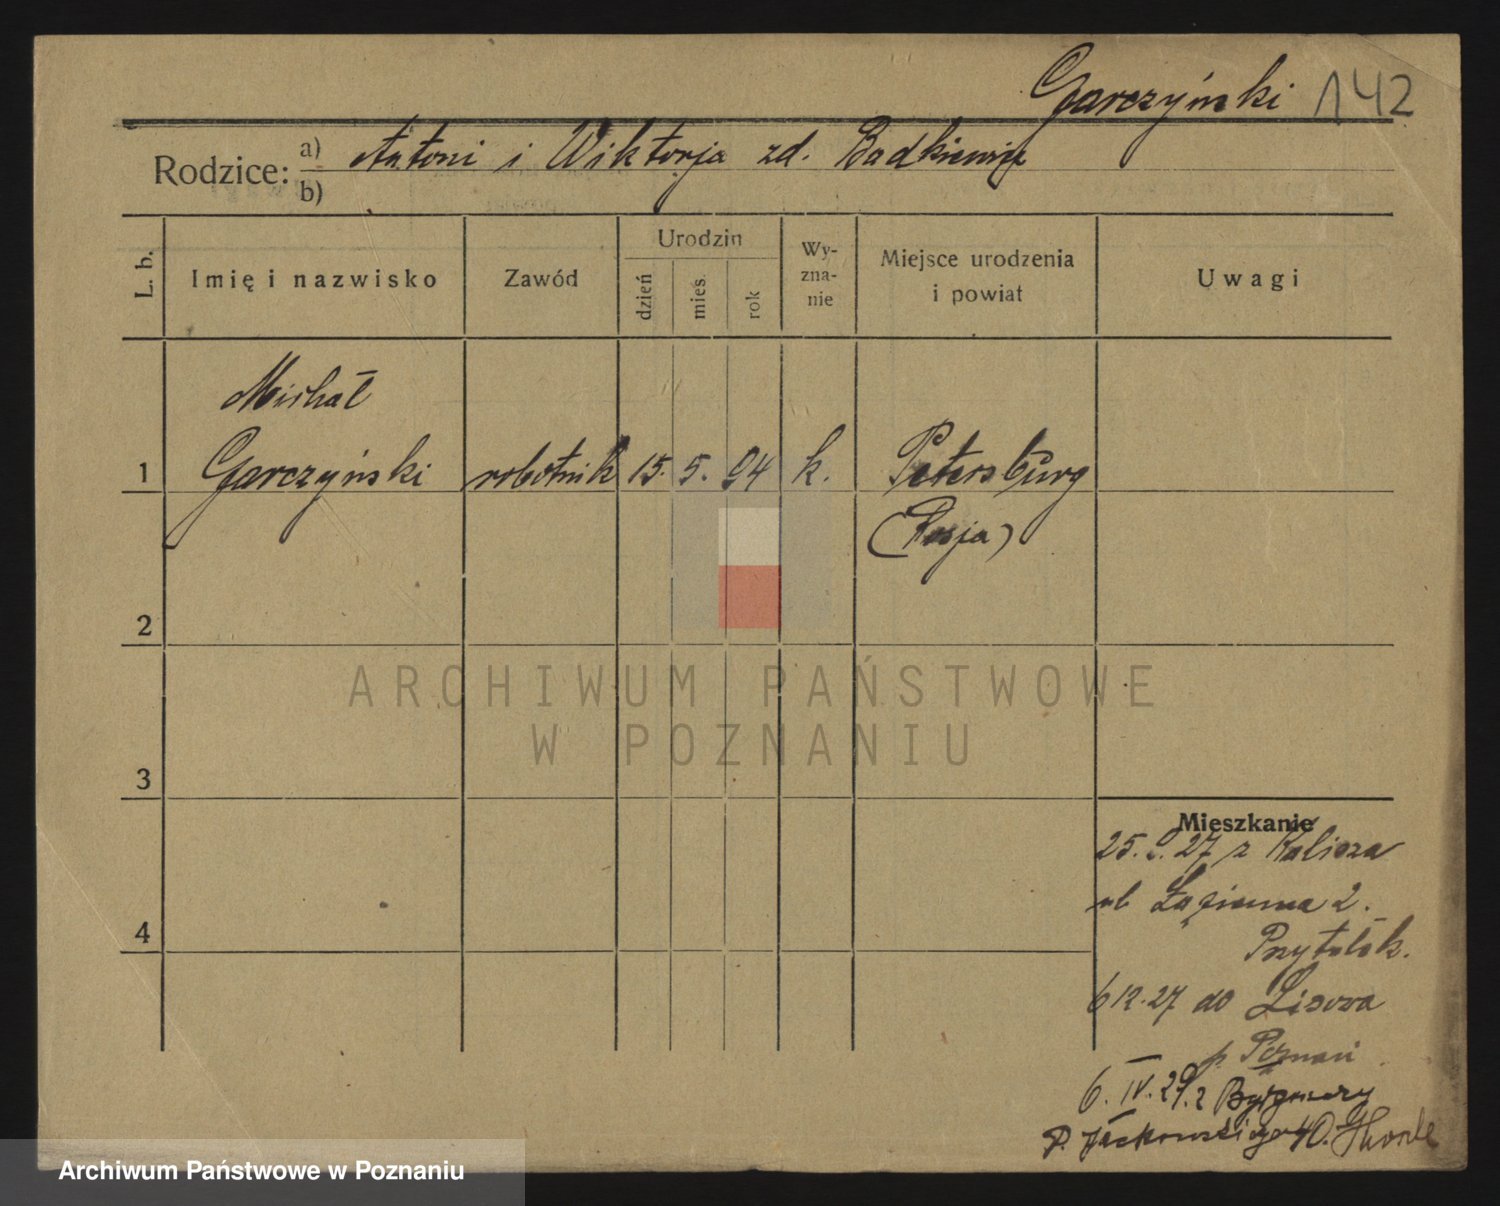 Garczyński 142
Rodzice: a) Antoni i Wiktorja zd. Badkiewicz
b)
L. b.
Imię i nazwisko
Zawód
Urodzin
dzień
mies.
rok
Wy-
zna-
nie
Miejsce urodzenia
i powiat
Uwagi
Michał
1 Garczyński robotnik 15. 5. 94 k. Petersburg
(Rosja)
2
ARCHIWUM PAŃSTWOWE
W POZNANIU
3
Mieszkanie
25. 27 z Kalisza
ul Łąkowa 2.
Przytułek.
4
6 12. 27 do
p. Poznań
6. IV. 29. z Bydgoszczy
P. Jackowskiego 40.
Archiwum Państwowe w Poznaniu